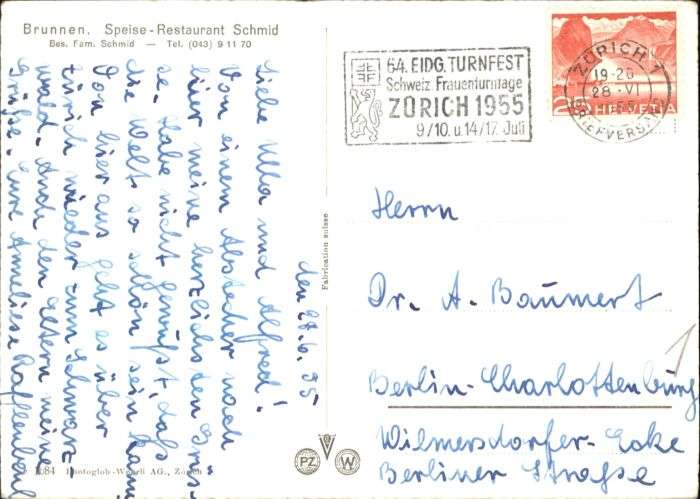 Brunnen. Speise-Restaurant Schmid
Bes. Fam. Schmid — Tel. (043) 9 11 70
den 27.6.55
Liebe Ulla und Alfred!
Von einem Abstecher nach
hier meine herzlichsten Grüs-
se. Habe nicht gewußt, daß
die Welt so schön sein kann
Von hier aus geht es über
Zürich wieder zum Schwarz-
wald. Auch den Eltern meine
Grüße. Eure Anneliese
84 Photoglob-Wehrli AG., Zürich
Fabrication suisse
PZ
W
64. EIDG. TURNFEST
Schweiz. Frauenturntage
ZÜRICH 1955
9/10. u. 14/17. Juli
ZÜRICH 1
19-20
28. VI
55
BRIEFVERSAND
HELVETIA
Herrn
Dr. A. Baumert
Berlin-Charlottenburg
Wilmersdorfer-Ecke
Berliner Straße